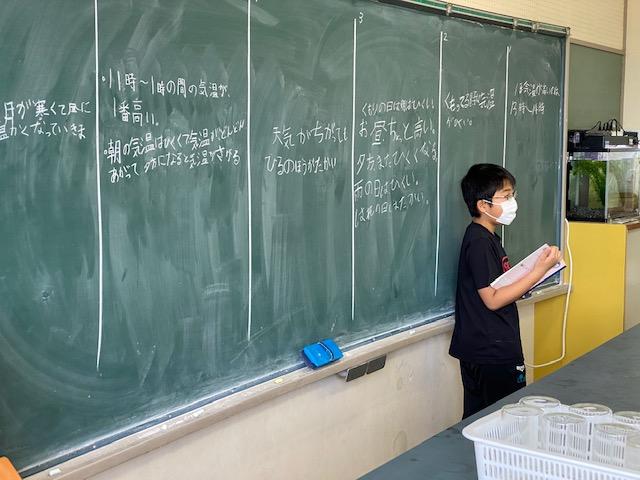 月が寒くて昼に
温かくなっていきま
・11時~1時の間の気温が、
1番高い。
・朝の気温はひくくて気温がどんどん
あがって夕方になると気温がさがる
天気がちがっても
ひるのほうがたかい
3
くもりの日は朝はひくい
お昼ちょっと高い。
夕方またひくくなる。
雨の日はひくい。
はれの日はたかい。
2
くもってる時気温
がひくい。
1